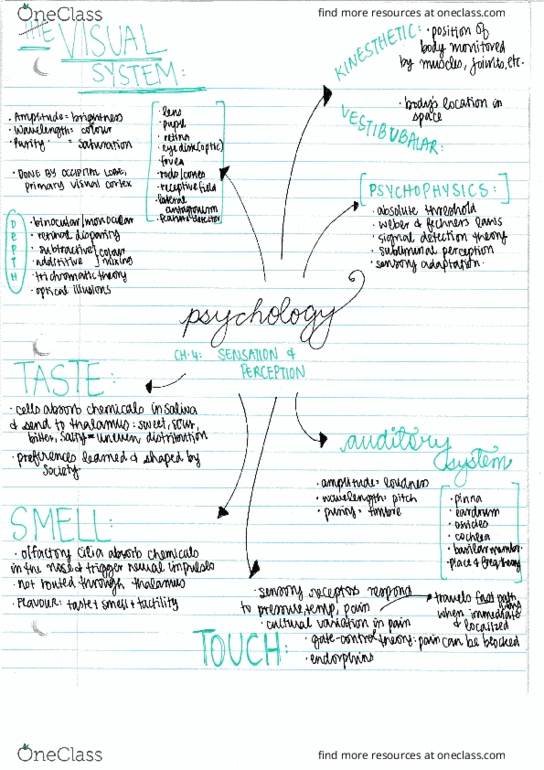 OneClass
find more resources at oneclass.com
THE VISUAL
SYSTEM:
· Amplitude= brightness
· Wavelength= colour
· Purity = saturation
· DONE BY OCCIPITAL LOBE,
primary visual cortex
· lens
· pupil
· retina
· eye disk (optic)
· fovea
· rods/cones
· receptive field
· lateral
antagonism
· feature detector
DEPTH
· binocular/monocular
· retinal disparity
· subtractive/ colour
· additive mixing
· trichromatic theory
· optical illusions
KINESTHETIC: · position of
body monitored
by muscles, joints, etc.
VESTIBUBALAR:
· body's location in
space
PSYCHOPHYSICS:
· absolute threshold
· weber & fechners laws
· signal detection theory
· subliminal perception
· sensory adaptation
psychology
CH.4: SENSATION &
PERCEPTION
TASTE:
· cells absorb chemicals in saliva
& send to thalamus: sweet, sour,
bitter, salty = uneven distribution
· preferences learned & shaped by
society
auditory
system
· amplitude= loudness
· wavelength= pitch
· purity= timbre
· pinna
· eardrum
· ossicles
· cochlea
· basilar membr.
· place & freq. theory
SMELL:
· olfactory cilia absorb chemicals
in the nose & trigger neural impulses
· not routed through thalamus
· FLAVOUR: taste + smell + tactility
TOUCH:
· sensory receptors respond
to pressure, temp, pain
· cultural variation in pain
· gate-control theory: pain can be blocked
· endorphins
travels fast path
when immediate
& localized
OneClass
find more resources at oneclass.com